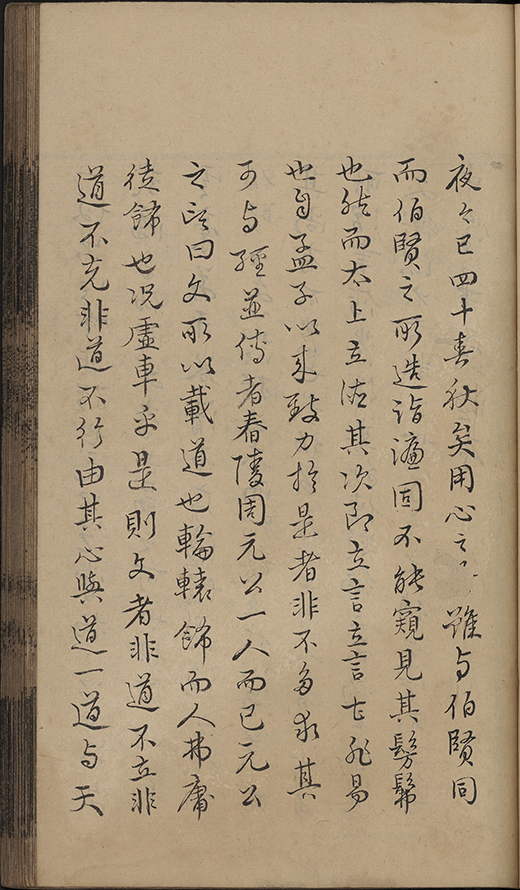 夜々已四十春秋矣用心之雖与伯賢同
而伯賢之所造詣濂固不能窺見其髣髴
也然而太上立德其次即立言立言非易
也自孟子以来致力於是者非不多求其
可与經並傳者舂陵周元公一人而已元公
之言曰文所以載道也輪轅飾而人弗庸
徒飾也况虛車乎是則文者非道不立非
道不充非道不行由其心與道一道与天